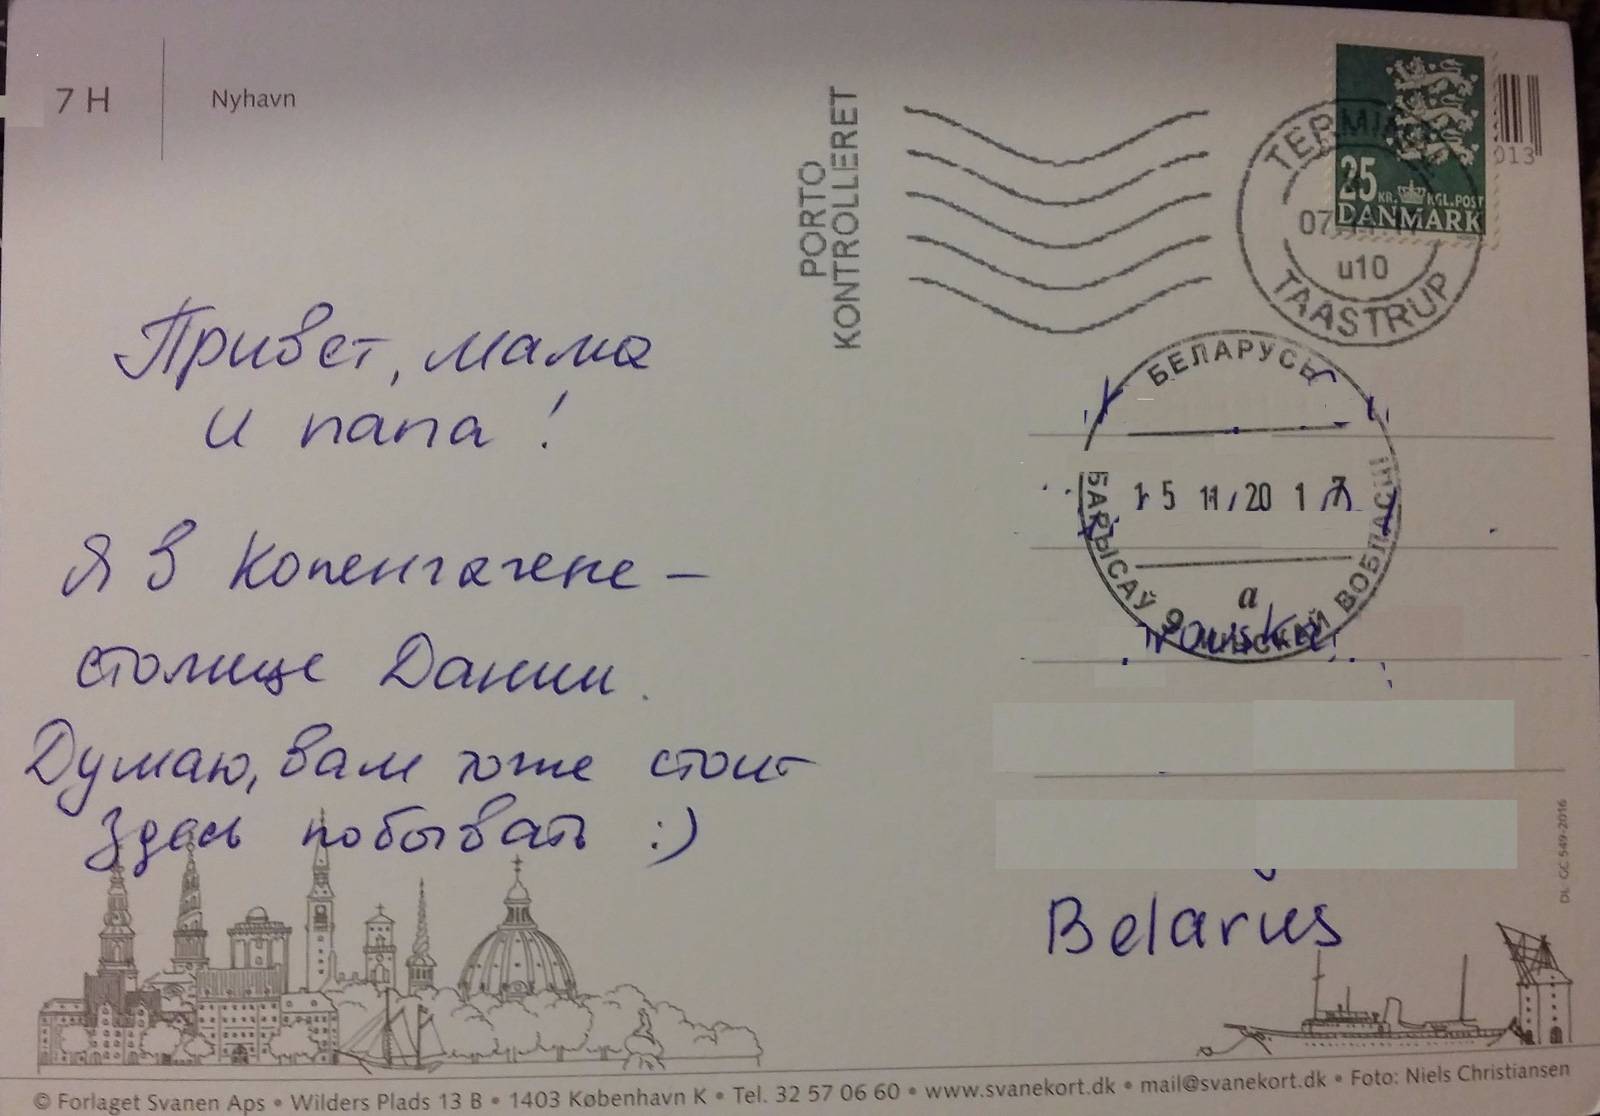 7 H
Nyhavn
PORTO
KONTROLLERET
25
KR. KGL.POST
DANMARK
013
07
u10
TAASTRUP
Привет, мама
и папа !
Я в Копенгагене –
столице Дании.
Думаю, вам тоже стоит
здесь побывать :)
БЕЛАРУСЬ
15 11 2017
а
БАРЫСАЎ 9 МІНСКАЙ ВОБЛАСЦІ
Belarus
DL GC 549-2016
© Forlaget Svanen Aps • Wilders Plads 13 B • 1403 København K • Tel. 32 57 06 60 • www.svanekort.dk • mail@svanekort.dk • Foto: Niels Christiansen